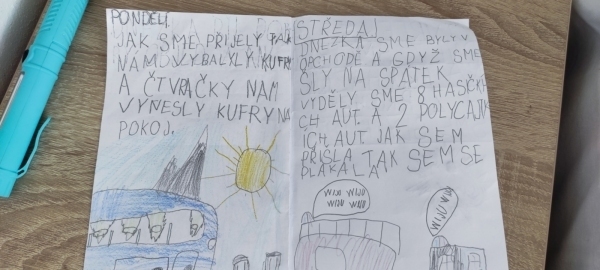 PONDĚLÍ.
JAK SME PŘIJELY TAK
NÁM VYBALYLY KUFRY
A ČTVRAČKY NÁM
VYNESLY KUFRY NA
POKOJ.
STŘEDA
DNEZKA SME BYLY V
OPCHODĚ A GDYŽ SME
ŠLY NA SPATEK
VYDĚLY SME 8 HASIČSKÝ
CH AUT. A 2 POLYCAJN
ICH AUT. JAK SEM
PŘIŠLA TAK SEM SE
PLAKALA
WIJU WIJU
WIJU WIJU
WIJU WIJU